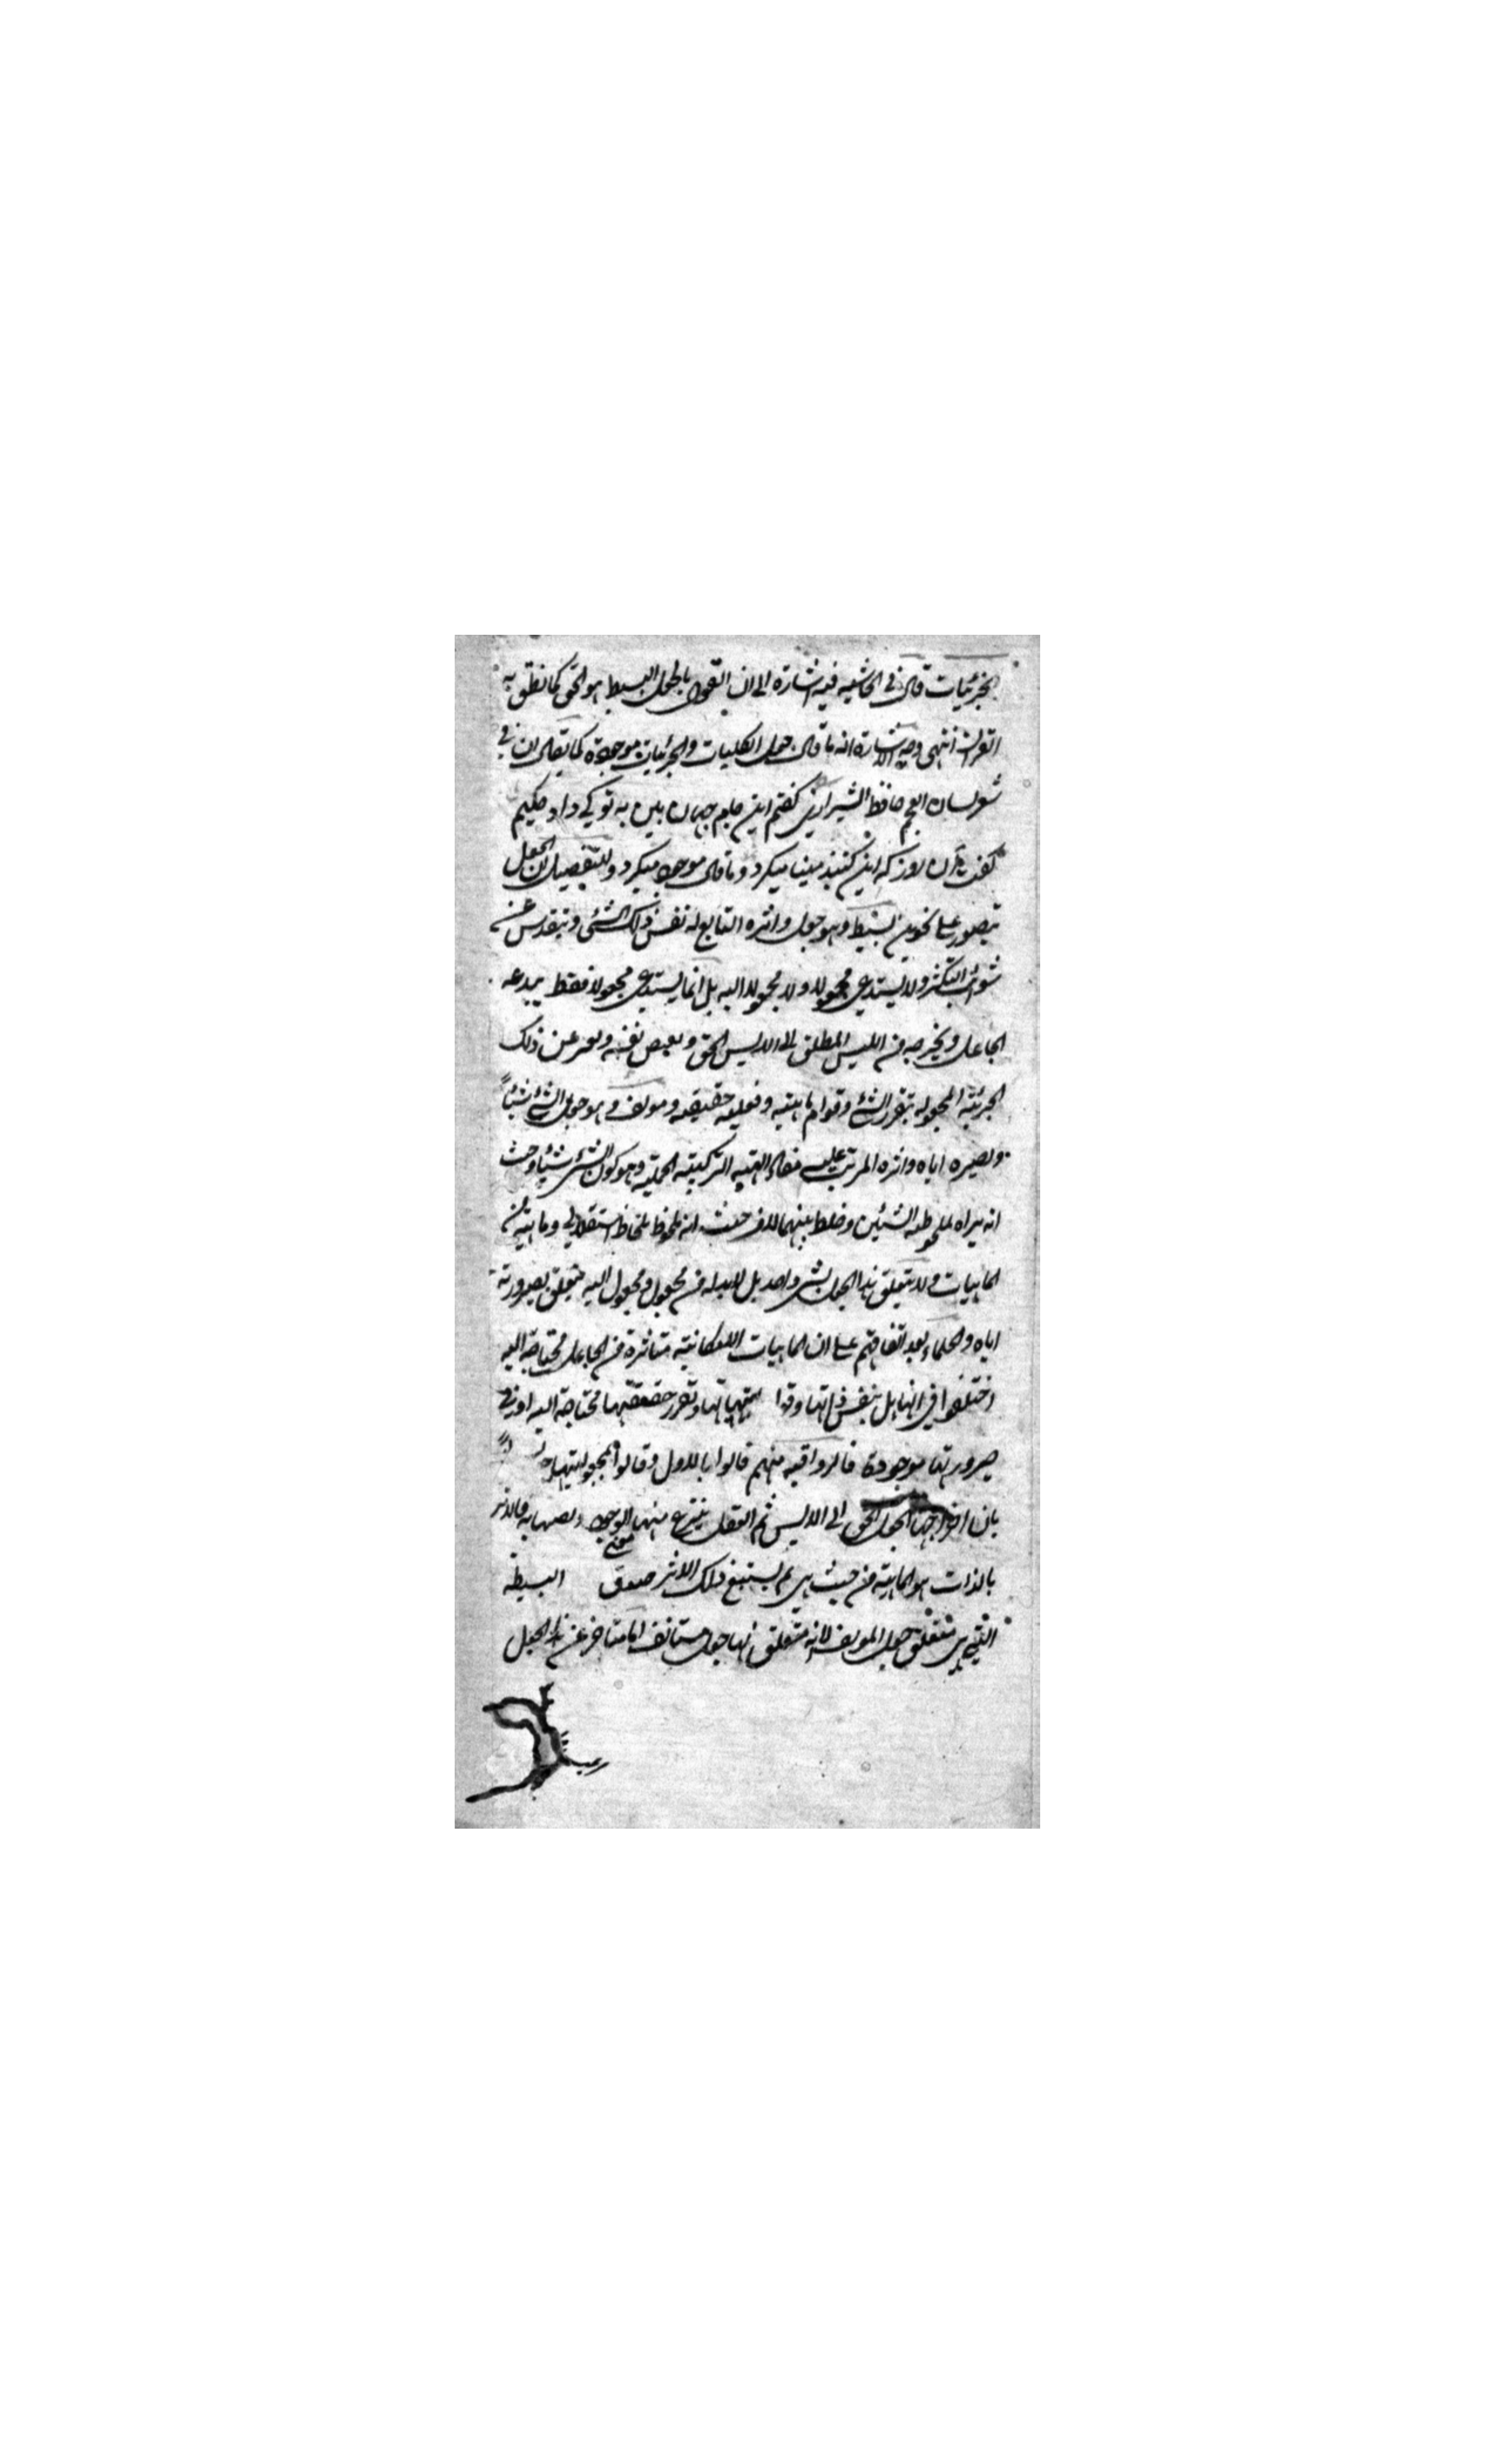 الجزئيات قال في الحاشيه فيه اشارة الى ان القول بالجعل البسيط هو الحق كما نطق به
القران انتهى وجه الاشارة انه ما قال جعل الكليات والجزئيات موجودة كما يقال ان في
شعر لسان العجم حافظ الشيرازي گفتم اين جام جهان بين به تو كي داد حكيم
گفت آن روز كه اين گنبد مينا ميكرد وما قال موجود ميكرد والتفصيل ان الجعل
يتصور على نحوين بسيط وهو جعل واثره التابع له نفس ذلك الشئ ويتقدس عن
شوائب التكثر ولا يستدعي مجعولا ولا مجعولا اليه بل انما يستدعي مجعولا فقط يبدعه
الجاعل ويخرجه من الليس المطلق الى الايس الحق و نفسه ويعبر عن ذلك
المجعوله بتقرر الشئ وقوام ماهيته وفعلية حقيقته ومولف وهو جعل الشئ شيئا
وتصيره اياه واثره المرتب عليه مفاد الهية التركيبية الحملية وهو كون الشئ شيئا وحيث
انه الشئين وخلط بينهما لامن حيث انه ملحوظ بلحاظ استقلالي وماهية من
الماهيات ولا يتعلق هذا الجعل بشئ واحد بل لابد له من مجعول ومجعول اليه متعلق بصيرورته
اياه والحكماء بعد اتفاقهم على ان الماهيات الامكانية متاثرة من الجاعل محتاجة اليه
اختلفوا في انها هل بنفس ذاتها وقوا ماهياتها وتقرر حقيقتها محتاجة اليه او في
صيرورتها موجودة فالرواقيه منهم قالوا بالاول وقالوا
بان الجعل الحق الى الايس ثم العقل ينتزع منها الوجود ويصفها به فالاثر
بالذات هو الماهية من حيث هي ثم يستتبع ذلك الاثر البسيطة
التي هي متعلق جعل المولف لا انه متعلق بها جعل مستانف متاخر عن هذا الجعل